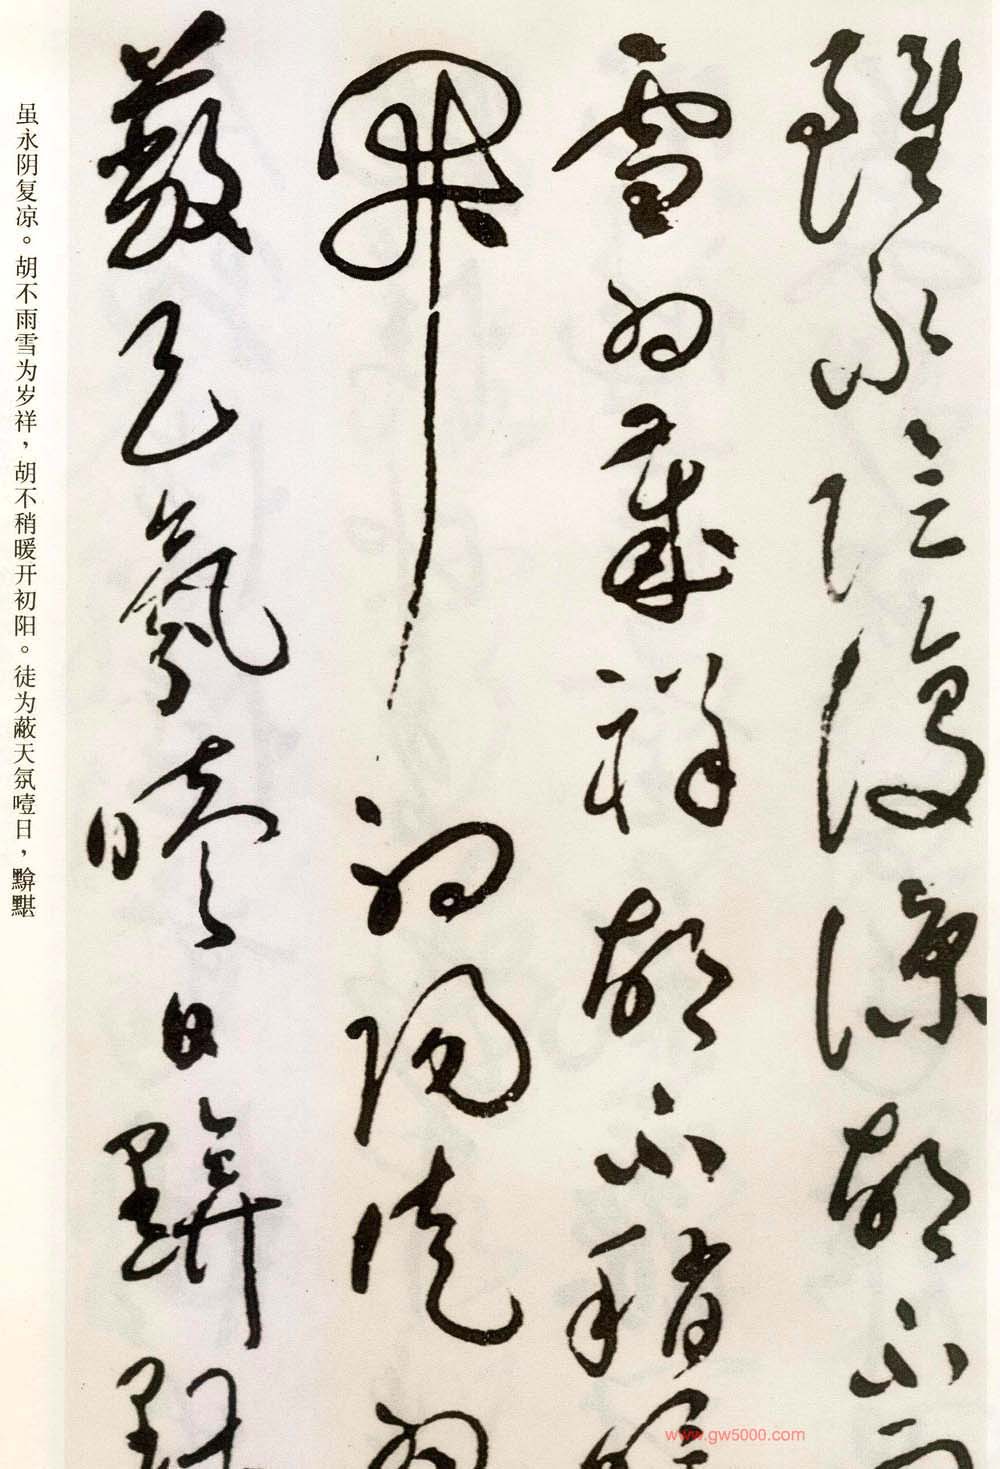 雖永陰復涼胡不雨
雪為歲祥胡不稍暖
開初陽徒為
蔽天氛噎日黭黮
虽永阴复凉。胡不雨雪为岁祥，胡不稍暖开初阳。徒为蔽天氛噎日，黭黮
www.gw5000.com